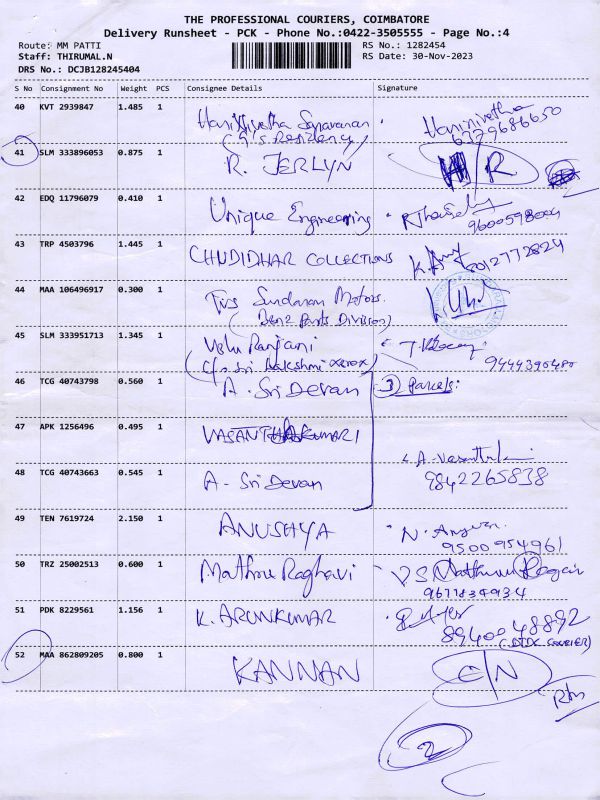 THE PROFESSIONAL COURIERS, COIMBATORE
Delivery Runsheet - PCK - Phone No.:0422-3505555 - Page No.:4
Route: MM PATTI RS No.: 1282454
Staff: THIRUMAL.N RS Date: 30-Nov-2023
DRS No.: DCJB128245404
S No Consignment No Weight PCS Consignee Details Signature
40 KVT 2939847 1.485 1 Saravanan
Residency)
41 SLM 333896053 0.875 1 R. JERLYN R
42 EDQ 11796079 0.410 1 Unique Engineering
43 TRP 4503796 1.445 1 CHUDIDHAR COLLECTIONS 8012772824
44 MAA 106496917 0.300 1 TVS Sundaram Motors.
(Benz Parts Division)
45 SLM 333951713 1.345 1 Ranjani
(C/o. Sri Lakshmi xerox)
46 TCG 40743798 0.560 1 A. Sri Devan 3 Parcels:
47 APK 1256496 0.495 1 VASANTHAKUMARI
48 TCG 40743663 0.545 1 A. Sri Devan 9842265838
49 TEN 7619724 2.150 1 ANUSHYA N.
9500954961
50 TRZ 25002513 0.600 1 Mathru Raghavi
51 PDK 8229561 1.156 1 K. ARUNKUMAR
8940048892
(DTDC COURIER)
52 MAA 862809205 0.800 1 KANNAN C/N
2